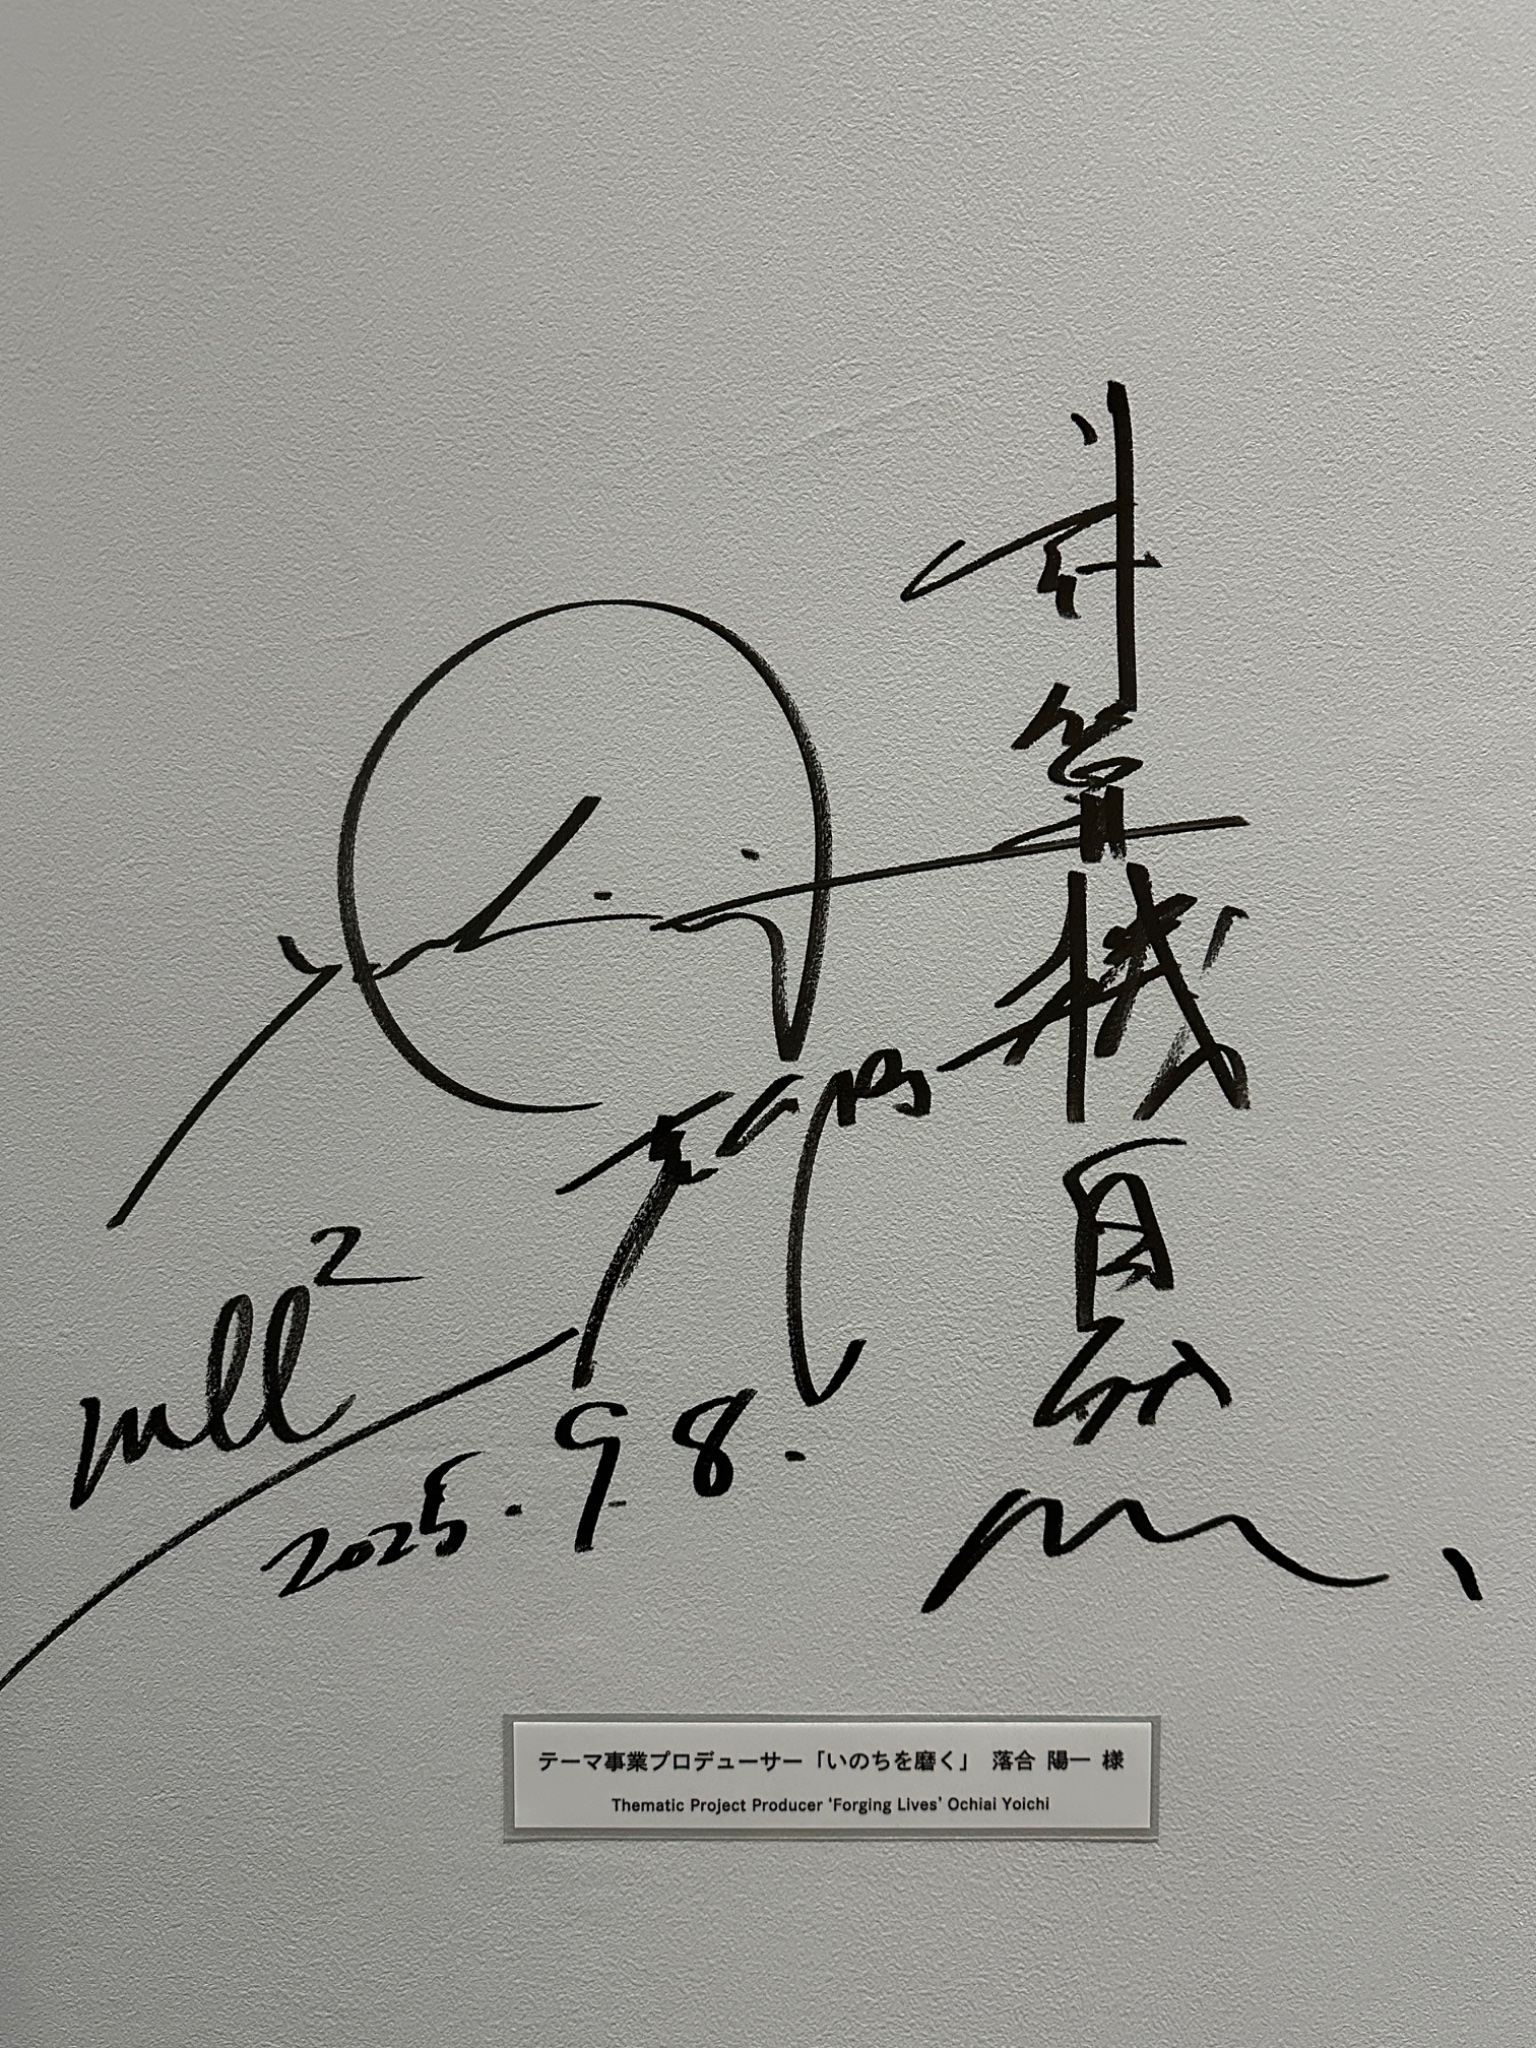 計算機自然
null²
2025.9.8.
テーマ事業プロデューサー「いのちを磨く」 落合 陽一 様
Thematic Project Producer ‘Forging Lives’ Ochiai Yoichi